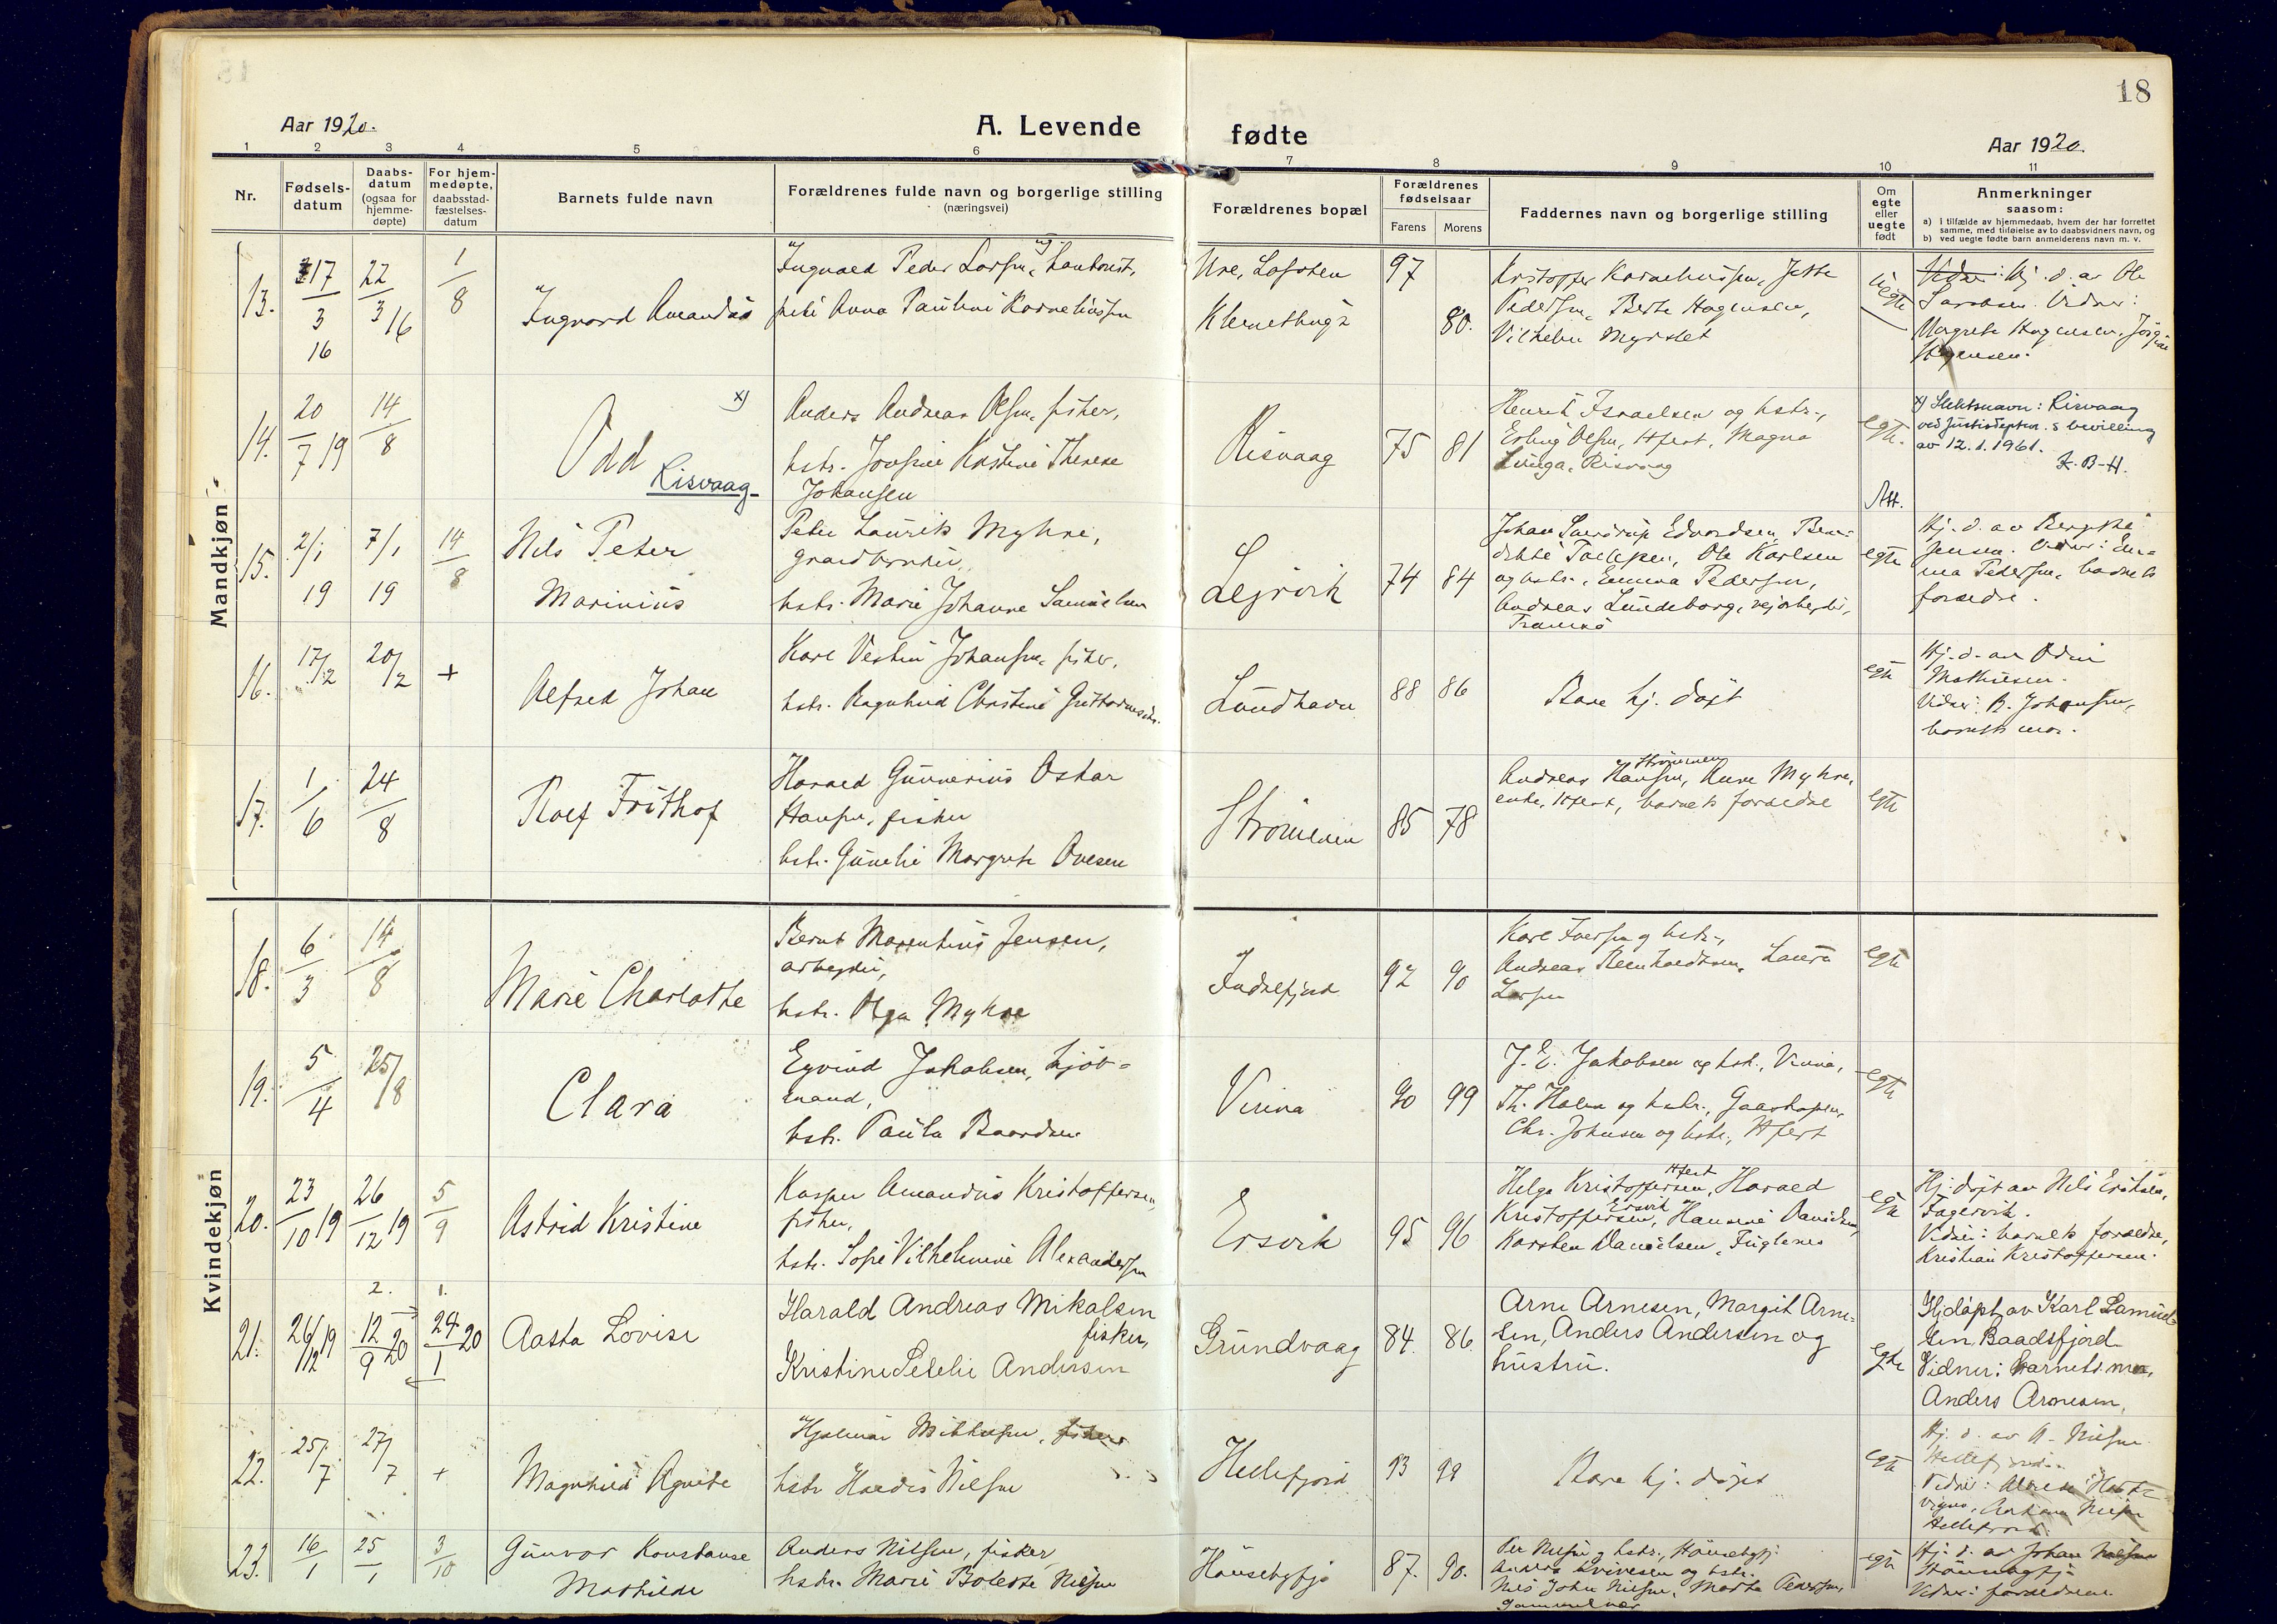 18
Aar 1920.
A. Levende
fødte
Aar 1920.
1 2 3 4 5 6 7 8 9 10 11
Nr.
Fødsels-
datum
Daabs-
datum
(ogsaa for
hjemme-
døpte)
For hjem-
medøpte,
daabsstad-
fæstelses-
datum
Barnets fulde navn
Forældrenes fulde navn og borgerlige stilling
(næringsvei)
Forældrenes bopæl
Forældrenes
fødselsaar
Farens Morens
Faddernes navn og borgerlige stilling
Om
egte
eller
uegte
født
Anmerkninger
saasom:
a) i tilfælde av hjemmedaab, hvem der har forrettet
samme, med tilføielse av to daabsvidners navn, og
b) ved uegte fødte barn anmelderens navn m. v.
Mandkjøn
13.
17/3 16
22/3 16
1/8
Ingvard Amandus
Ingvald Peder Larsen, ug.
pike Anna Pauline Korneliussen
Ure, Lofoten
97
80.
Kristoffer Korneliussen, Jette
Pedersen, Berte Hagensen,
Vilhelm Myrslet
uegte
Hj. d. av Ole
Jacobsen. Vidner:
Margrete Hagensen, Jørgine
Hagensen.
14.
20/7 19
14/8
Odd x)
Risvaag
Anders Andreas Olsen, fisker,
hstr. Josefine Kristine Therese
Johansen
Risvaag
75 81
Henrik Israelsen og hstr.,
Erling Olsen, Hfest, Magna
Risvaag
egte.
x) Slektsnavn: Risvaag
ved Justisdeptm.s bevilling
av 12.1.1961.
K. B-H.
Att.
15.
2/1 19
7/1 19
14/8
Nils Peter
Marinius
Peder Laurits Myhre,
gaardbruker,
hstr. Marie Johanne Samuelsen
Lejrvik
74 84
Johan Sverdrup Edvardsen, Ben-
dikte Ole Karlsen
og hstr., Emma Pedersen,
Andreas Lundeborg, vejarbejder,
Tromsø
egte
Hj. d. av
Jensen. Vidner: Em-
ma Pedersen, barnets
forældre.
16.
17/2
20/2
+
Alfred Johan
Karl Vestin Johansen, fisker,
hstr. Ragnhild Christine Guttormsdtr.
Lundhavn
88 86
Bare hj. døpt
egte
Hj. d. av Odin
Mathisen.
Vidner: R. Johansen,
barnets mor.
17.
1/6
24/8
Rolf Frithof
Harald Gunnerius Oskar
Hansen, fisker
hstr. Gunelie Margrete Ovesen
Strömmen
85 78
Strömmen
Andreas Hansen, Anne Myhre,
enke, Hfest, barnets forældre
egte
Kvindekjøn
18.
6/3
14/8
Marie Charlotte
Bernt Marentius Jensen,
arbeyder,
hstr. Olga Myhre
Indrefjord
92 90
Karl Iversen og hstr.,
Andreas Reinholdtsen, Laura
Larsen
egte
19.
5/4
25/8
Clara
Eyvind Jakobsen, kjöb-
mand,
hstr. Paula Baardsen
Vinna
90 99
J. E. Jakobsen og hstr., Vinna,
Th. Holm og hstr., Gaashopen,
Chr. Johnsen og hstr., Hfest
egte
20.
23/10 19
26/12 19
5/9
Astrid Kristine
Kasper Amandus Kristoffersen,
fisker,
hstr. Sofie Vilhelmine Alexandersen
Ersvik
95 96
Hfest
Helga Kristoffersen, Harald
Ersvik
Kristoffersen, Hansine Danielsen,
Karsten Danielsen, Fuglenes
egte
Hj. døpt av Nils Eriksen,
Fagervik.
Vidner: barnets forældre,
Kristian Kristoffersen.
21.
26/12 19
2.
12/9 20
1.
24/1 20
Aasta Lovise
Harald Andreas Mikalsen
fisker,
Kristine Andersen
Grundvaag
84. 86.
Arne Arnesen, Margit Arne-
sen, Anders Andersen og
hustru.
egte
Hjdøpt av Karl Samuel-
sen, Baadsfjord
Vidner: Barnets mor,
Anders Arnesen.
22.
25/7
27/7
+
Magnhild Agnete
Hjalmar Mikkelsen, fisker
hstr Hardis Nilsen
Hellefjord
93 98
Bare hj. døpt
egte
Hj. d. av A. Nilsen
Hellefjord.
Vidner:
Nilsen
Hellefjord
23.
16/1
25/1
3/10
Gunvor Konstanse
Mathilde
Anders Nilsen, fisker,
hstr. Marie Bolette Nilsen
Hönsebyfj.
87. 90.
Nilsen og hstr., Hönsebyfj.
Anders og hstr.
Nils John Nilsen, Marta Pedersen,
Gammelvær
egte
Hj. d. av Johan Nilsen
Hönsebyfj.
Vidner: forældrene